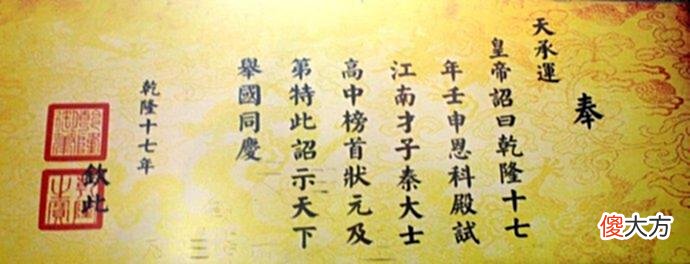 奉
天承運
皇帝詔曰乾隆十七
年壬申恩科殿試
江南才子秦大士
高中榜首狀元及
第特此詔示天下
舉國同慶
乾隆十七年
欽此
傻大方